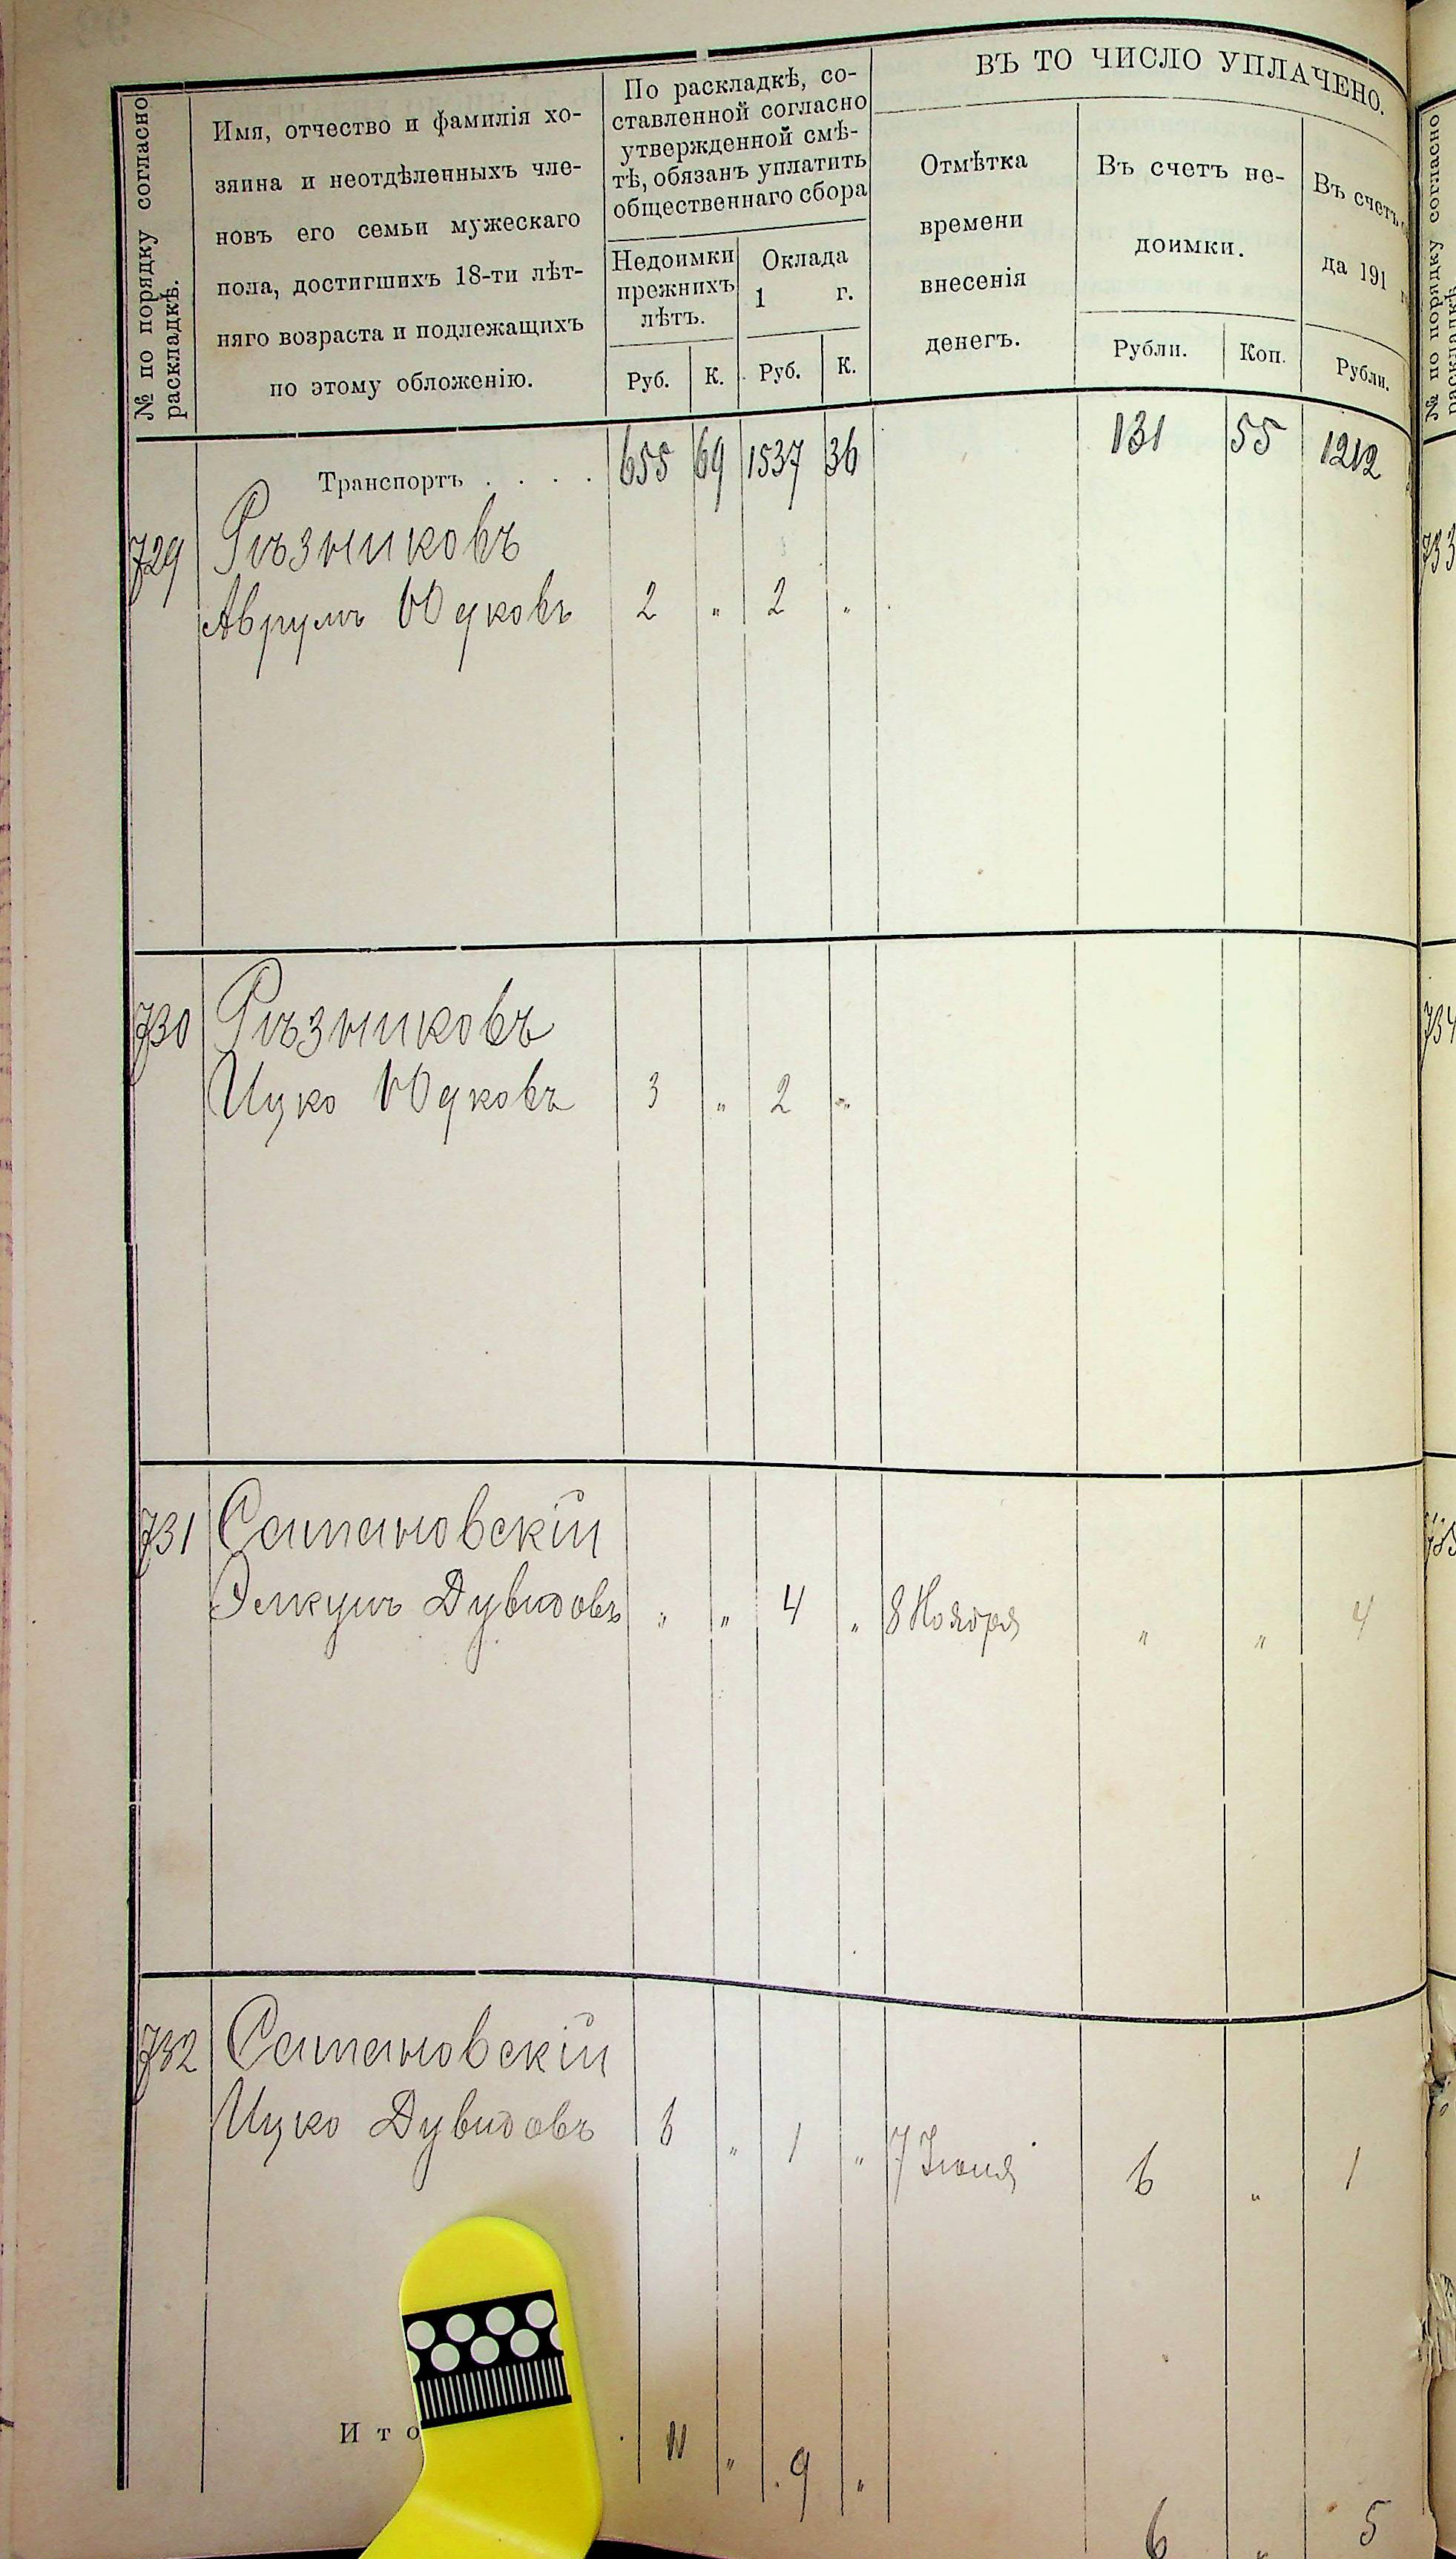 ВЪ ТО ЧИСЛО УПЛАЧЕНО.
№ по порядку согласно
раскладкѣ.
Имя, отчество и фамилія хо-
зяина и неотдѣленныхъ чле-
новъ его семьи мужескаго
пола, достигшихъ 18-ти лѣт-
няго возраста и подлежащихъ
по этому обложенію.
По раскладкѣ, со-
ставленной согласно
утвержденной смѣ-
тѣ, обязанъ уплатить
общественнаго сбора
Недоимки
прежнихъ
лѣтъ.
Оклада
1 г.
Руб. К. Руб. К.
Отмѣтка
времени
внесенія
денегъ.
Въ счетъ не-
доимки.
Рубли. Коп.
Въ счетъ
да 191
Рубли.
Транспортъ . . . . 655 69 1537 36 131 55 1212
729 Рѣзниковъ
Аврумъ Юдковъ 2 " 2 "
730 Рѣзниковъ
Ицко Юдковъ 3 " 2 "
731 Сатановскій
Элкунъ Дувидовъ " " 4 " 8 Ноября " " 4
732 Сатановскій
Ицко Дувидовъ 6 " 1 " 7 Іюня 6 " 1
Ито . 11 " 9 "
6 " 5
№ по порядку согласно
раскладкѣ
733
734